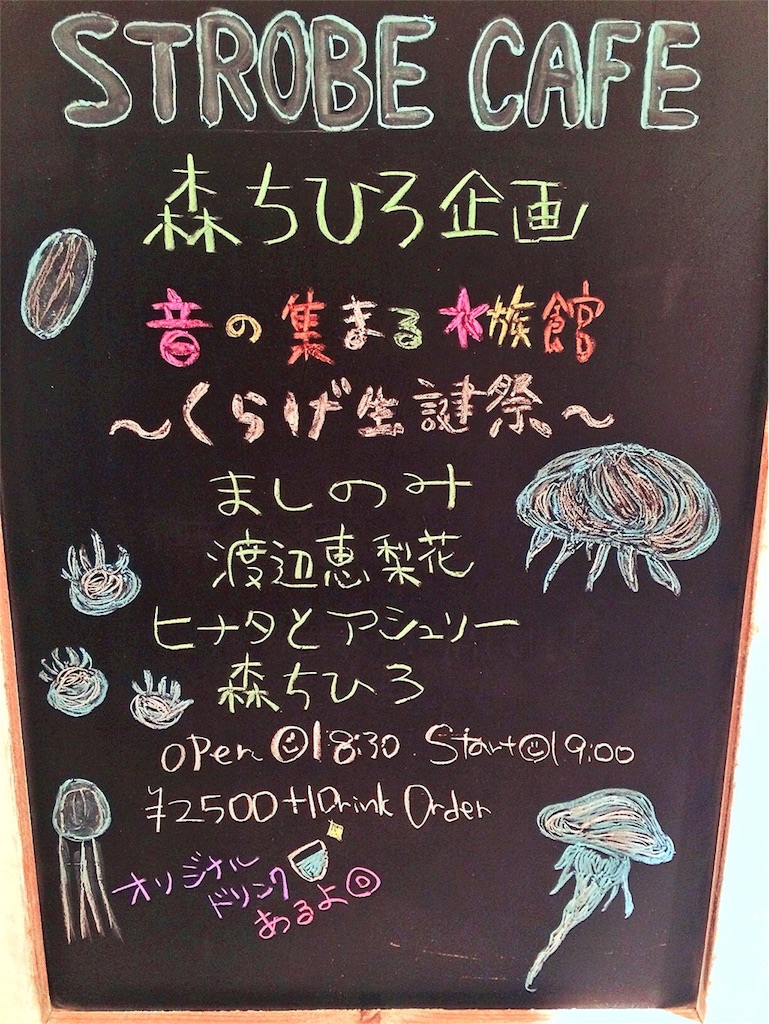 STROBE CAFE
森ちひろ企画
音の集まる水族館
～くらげ生誕祭～
ましのみ
渡辺恵梨花
ヒナタとアシュリー
森ちひろ
open 18:30 Start 19:00
¥2500+1Drink Order
オリジナル
ドリンク
あるよ